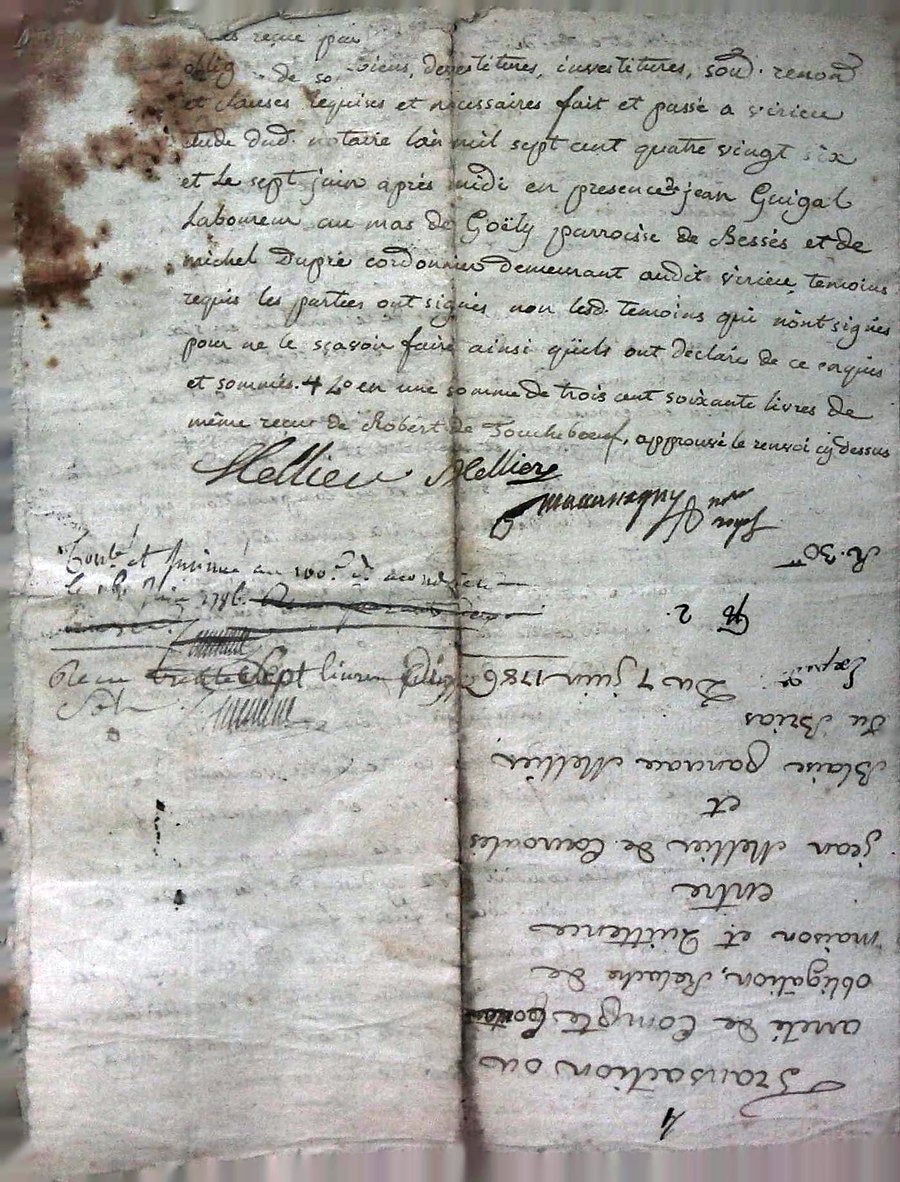 es recue par
oblig de so biens, devestitures, investitures, soūd. renonō
et clauses requises et necessaires fait et passé a virieu
etude dud. notaire l'an mil sept cent quatre vingt six
et le sept juin après midi en presence de jean Guigal
Laboureur au mas de Goëly parroisse de Bessés et de
michel Dupré cordonnier demeurant audit virieu, temoins
requis les parties ont signés non lesd. temoins qui nont signés
pour ne le sçavoir faire ainsi qu'ils ont declaré de ce enquis
et sommés. + Lo en une somme de trois cent soixante livres de
même recue de Robert de Toucheboeuf, approuvé le renvoi cy dessus
Mellier Mellier
nre royal
R. 30
le juin 1786
Recu trente sept livres dix
Sols
4
Transaction ou
arrêté de Compte
obligation, Relache de
maison et Quittence
entre
jean Mellier de
et
Blaise Mellier
du Brias
Du 7 juin 1786
Expié
2.